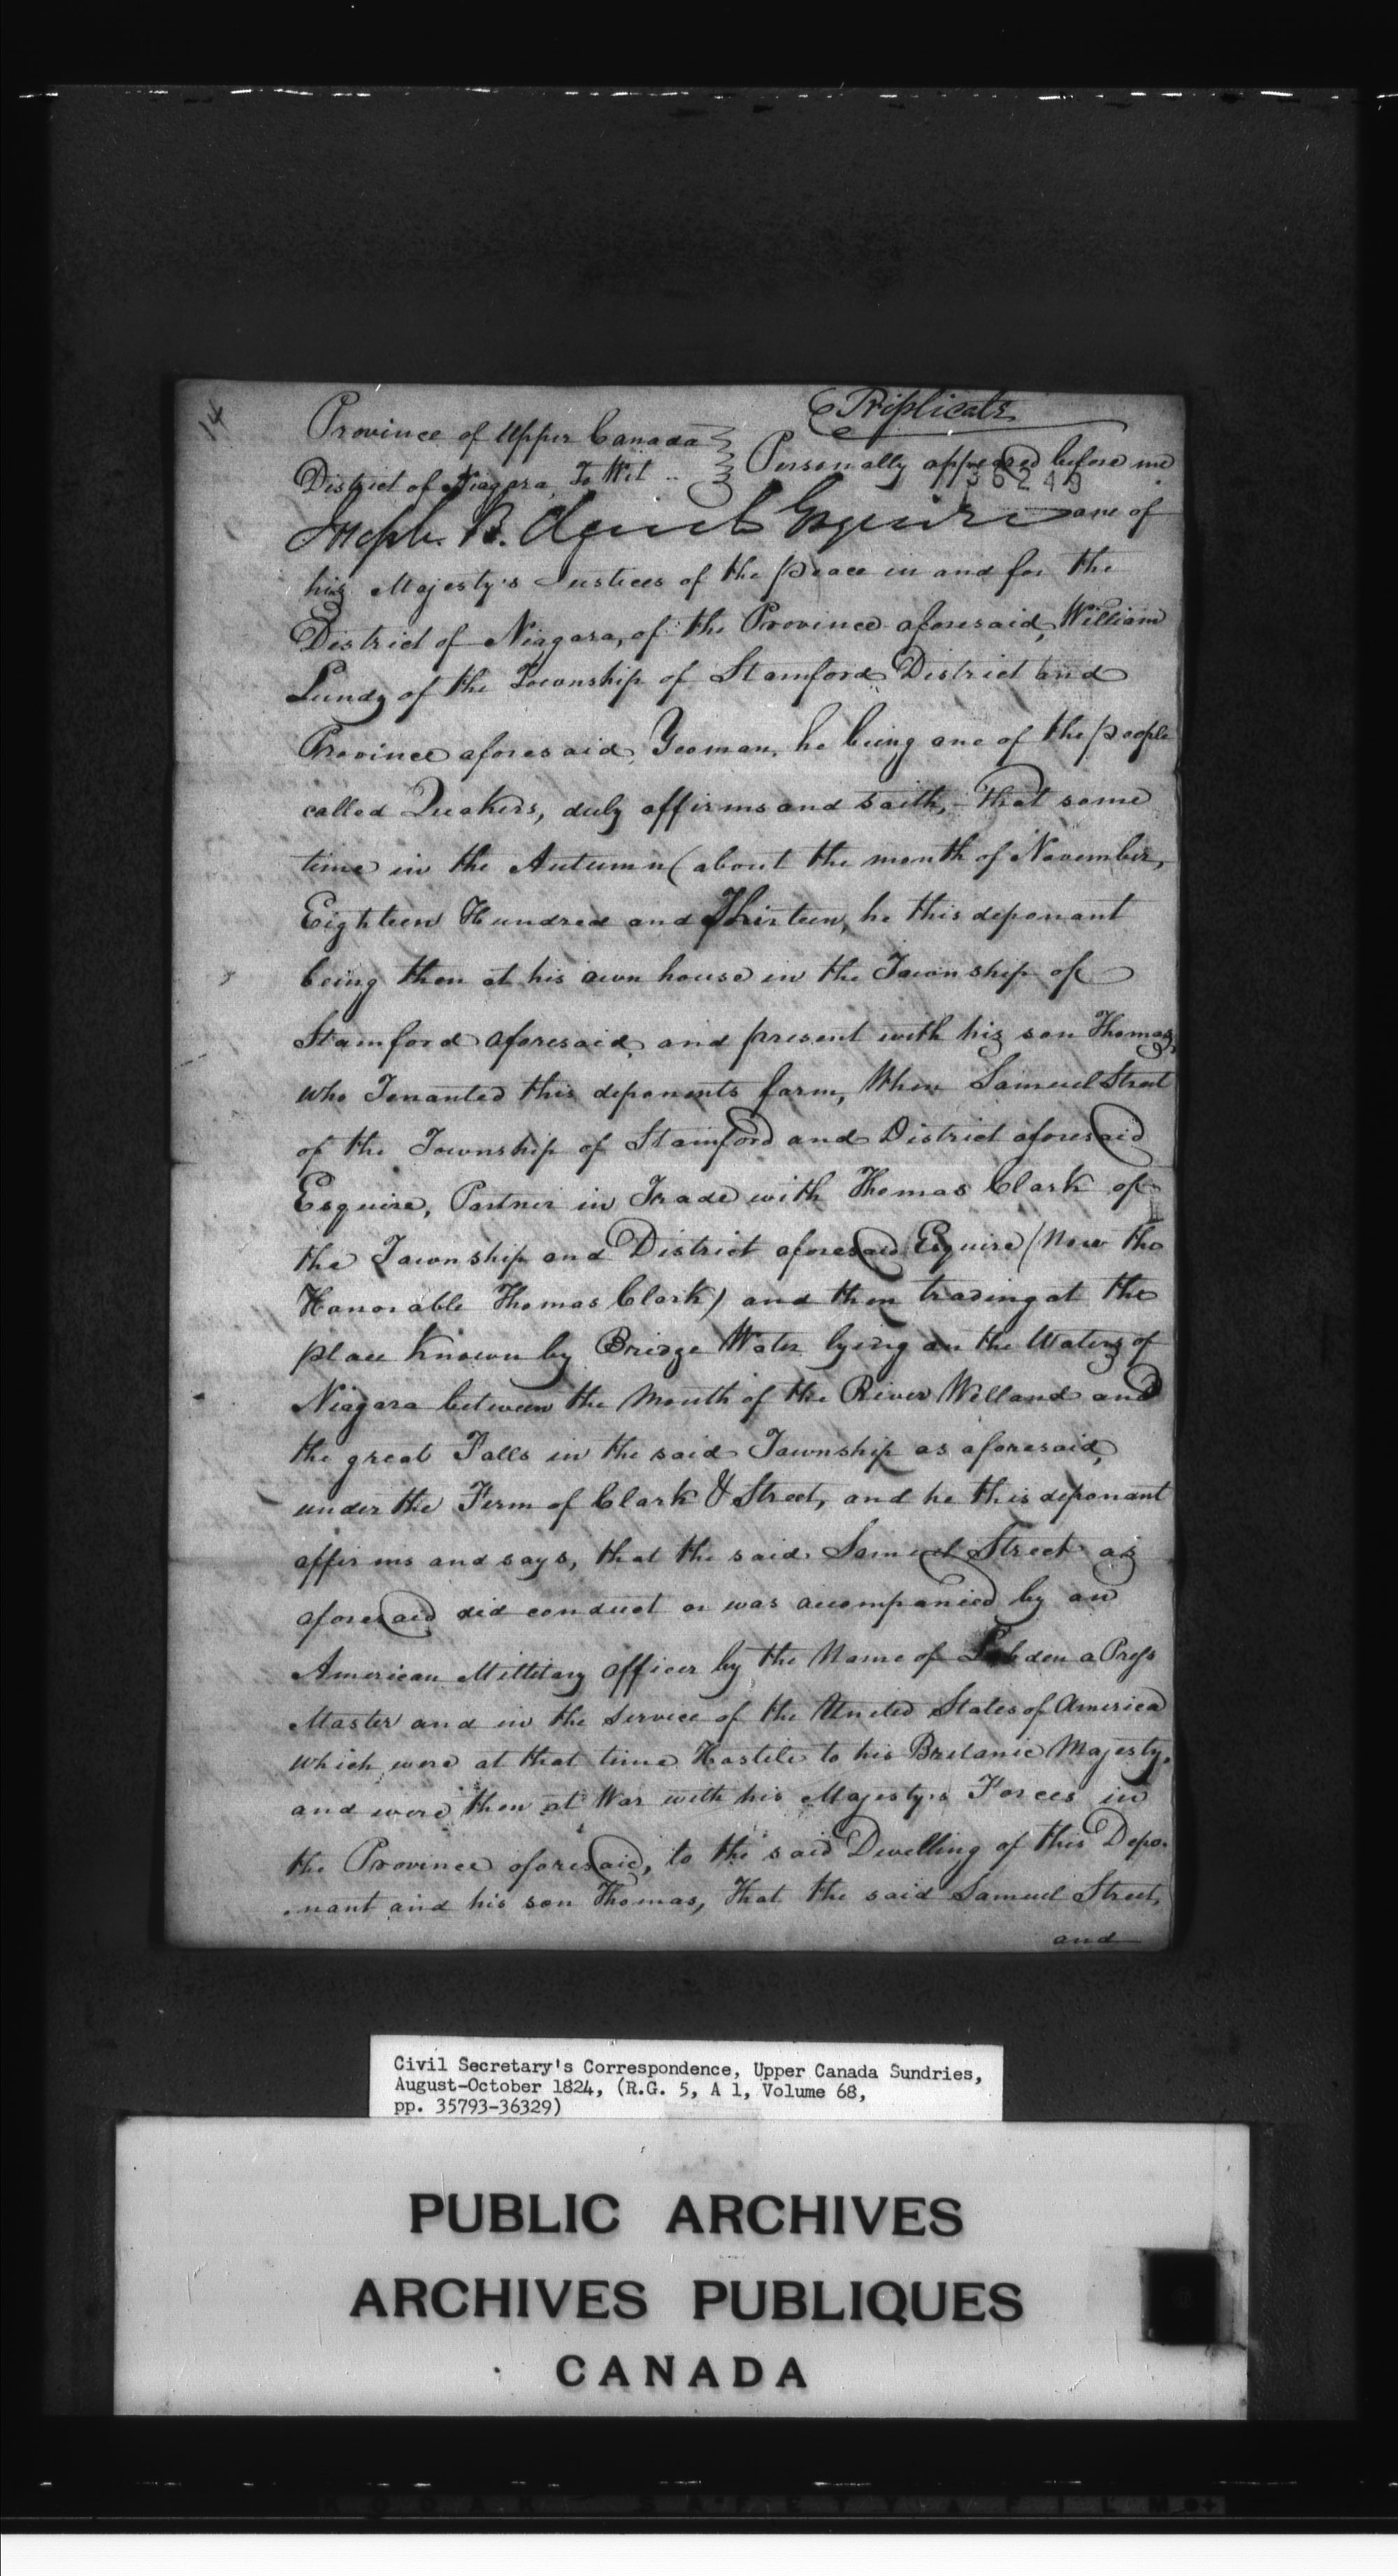 14
Triplicate
Province of Upper Canada
District of Niagara, To Wit ..
Personally appeared before me
36249
Joseph. B. Clench Esquire one of
his Majesty's Justices of the peace in and for the
District of Niagara, of the Province aforesaid, William
Lundy of the Township of Stamford District and
Province aforesaid, Yeoman, he being one of the people
called Quakers, duly affirms and saith, - That some
time in the Autumn (about the month of November,
Eighteen Hundred and Thirteen, he this deponant
being then at his own house in the Township of
Stamford aforesaid, and present with his son Thomas,
who Tenanted this deponents farm, When Samuel Street
of the Township of Stamford and District aforesaid
Esquire, Partner in Trade with Thomas Clark of
the Township and District aforesaid Esquire (Now the
Honorable Thomas Clark) and then trading at the
place known by Bridge Water lying on the Waters of
Niagara between the Mouth of the River Welland and
the great Falls in the said Township as aforesaid,
under the Firm of Clark & Street, and he this deponant
affirms and says, that the said Samuel Street as
aforesaid did conduct or was accompanied by an
American Millitary officer by the Name of a Press
Master and in the Service of the United States of America
which were at that time Hostile to his Britanic Majesty,
and were then at War with his Majestys Forces in
the Province aforesaid, to the said Dwelling of this Depo-
nant and his son Thomas, That the said Samuel Street,
and
Civil Secretary's Correspondence, Upper Canada Sundries,
August-October 1824, (R.G. 5, A 1, Volume 68,
pp. 35793-36329)
PUBLIC ARCHIVES
ARCHIVES PUBLIQUES
CANADA